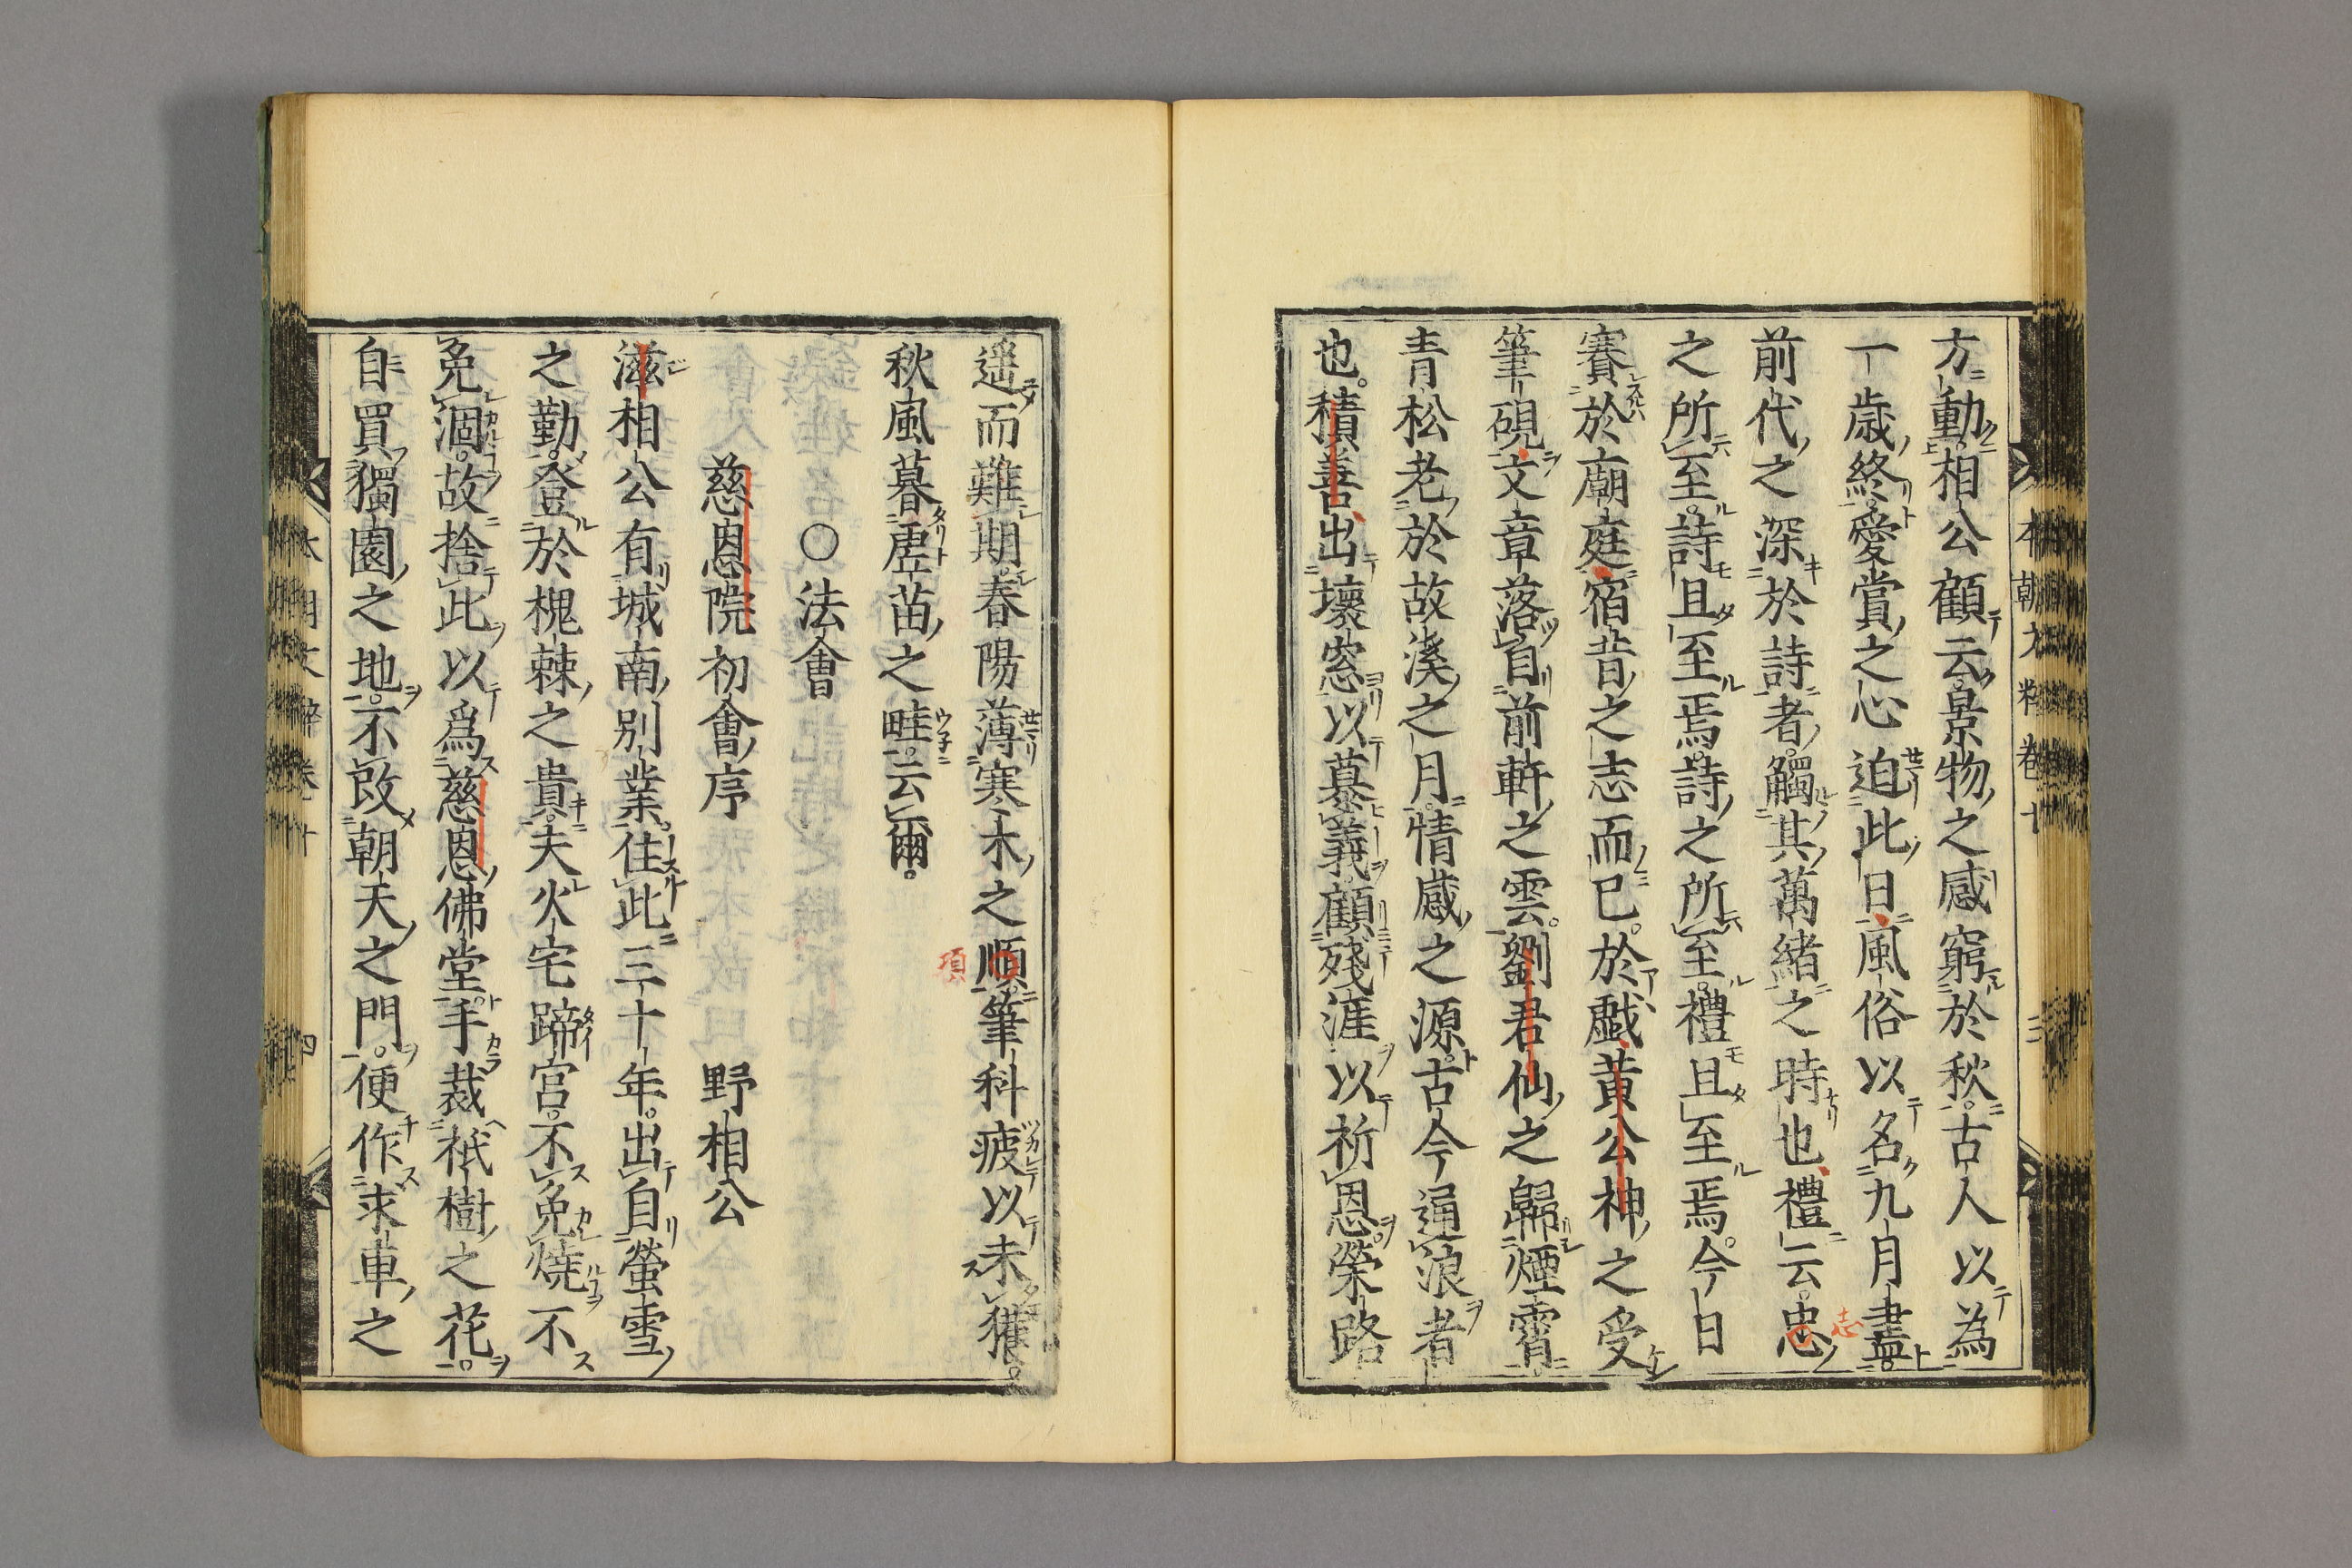 方動相公顧云景物之感窮於秋古人以為
一歳終愛賞之心迫此日風俗以名九月盡
前代之深於詩者觸其萬緒之時也禮云忠
志
之所至詩且至焉詩之所至禮且至焉今日
賽於廟庭宿昔之志而已於戲黄公神之受
筆硯文章落自前軒之雲劉君仙之歸煙霄
青松老於故溪之月情感之源古今通浪者
也積善出壞窓以慕義顧殘涯以祈恩榮路
遥而難期春陽薄寒木之順筆科疲以未獲
項
秋風暮唐苗之畦云爾
○法會
慈恩院初會序 野相公
滋相公有城南別業住此三十年出自螢雪
之勤登於槐棘之貴夫火宅蹄宮不免燒不
免涸故捨此以爲慈恩佛堂手裁祇樹之花
自買獨園之地不改朝天之門便作求車之
本朝文粹卷十
三
四